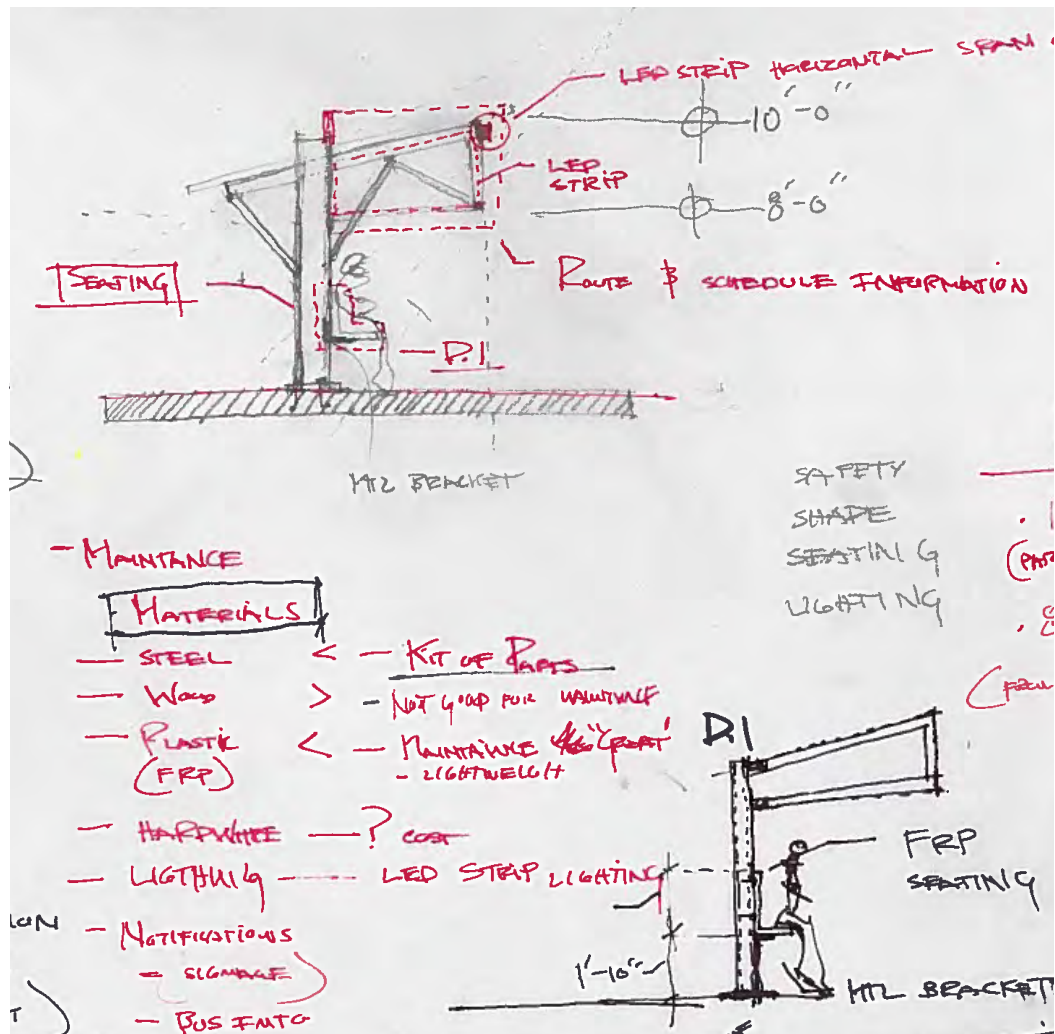 LED STRIP HORIZONTAL SPAN
10'-0"
LED
STRIP
8'-0"
SEATING
ROUTE & SCHEDULE INFORMATION
D.1
MTL BRACKET
SAFETY
SHAPE
SEATING
LIGHTING
- MAINTANCE
MATERIALS
— STEEL < — KIT OF PARTS
— WOOD > — NOT GOOD FOR
— PLASTIC < — "GREAT"
(FRP) - LIGHTWEIGH
— ? COST
— LIGTHNIG LED STRIP LIGHTING
- NOTIFICATIONS
- SIGNAGE
- BUS
D.1
FRP
SEATING
1'-10"
MTL BRACKET